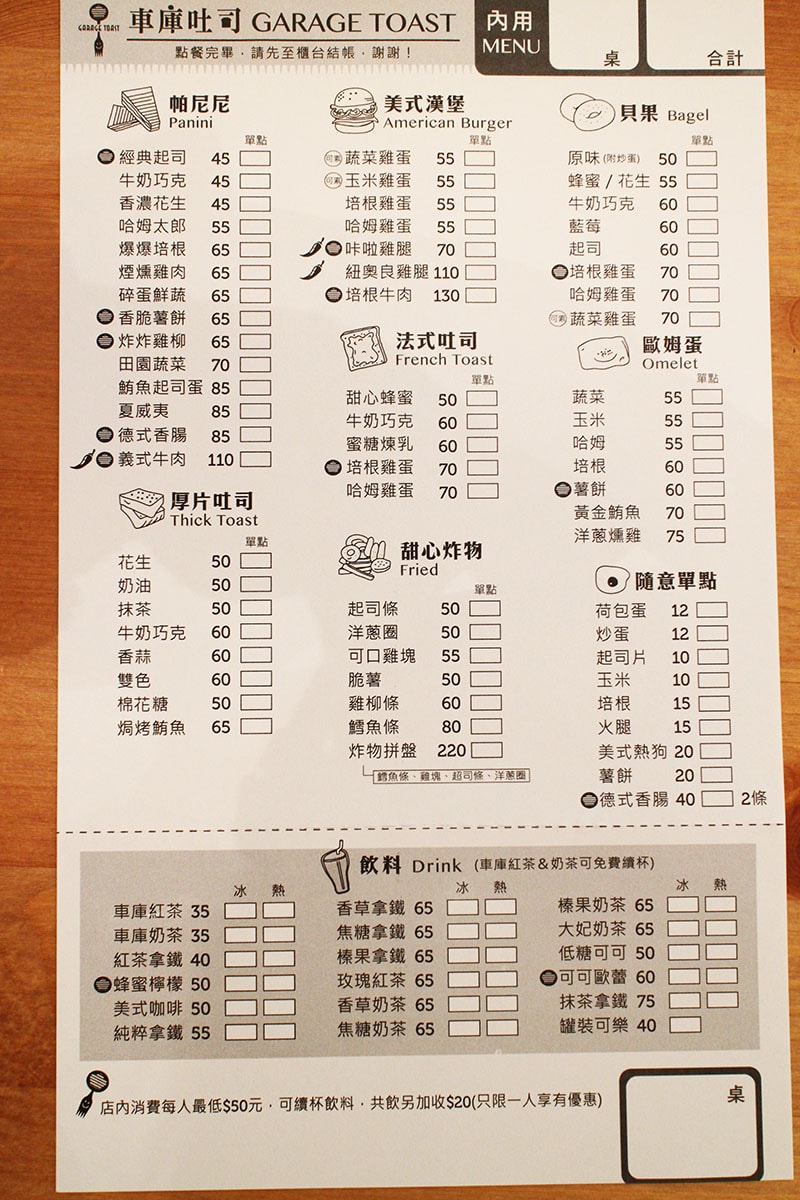 GARAGE TOAST
車庫吐司 GARAGE TOAST
點餐完畢，請先至櫃台結帳，謝謝！
內用
MENU
桌
合計
帕尼尼
Panini
單點
經典起司 45
牛奶巧克 45
香濃花生 45
哈姆太郎 55
爆爆培根 65
煙燻雞肉 65
碎蛋鮮蔬 65
香脆薯餅 65
炸炸雞柳 65
田園蔬菜 70
鮪魚起司蛋 85
夏威夷 85
德式香腸 85
義式牛肉 110
厚片吐司
Thick Toast
單點
花生 50
奶油 50
抹茶 50
牛奶巧克 60
香蒜 60
雙色 60
棉花糖 50
焗烤鮪魚 65
美式漢堡
American Burger
單點
可素 蔬菜雞蛋 55
可素 玉米雞蛋 55
培根雞蛋 55
哈姆雞蛋 55
咔啦雞腿 70
紐奧良雞腿 110
培根牛肉 130
法式吐司
French Toast
單點
甜心蜂蜜 50
牛奶巧克 60
蜜糖煉乳 60
培根雞蛋 70
哈姆雞蛋 70
甜心炸物
Fried
單點
起司條 50
洋蔥圈 50
可口雞塊 55
脆薯 50
雞柳條 60
鱈魚條 80
炸物拼盤 220
鱈魚條、雞塊、起司條、洋蔥圈
貝果 Bagel
單點
原味(附炒蛋) 50
蜂蜜 / 花生 55
牛奶巧克 60
藍莓 60
起司 60
培根雞蛋 70
哈姆雞蛋 70
可素 蔬菜雞蛋 70
歐姆蛋
Omelet
單點
蔬菜 55
玉米 55
哈姆 55
培根 60
薯餅 60
黃金鮪魚 70
洋蔥燻雞 75
隨意單點
荷包蛋 12
炒蛋 12
起司片 10
玉米 10
培根 15
火腿 15
美式熱狗 20
薯餅 20
德式香腸 40 2條
飲料 Drink (車庫紅茶＆奶茶可免費續杯)
冰 熱
車庫紅茶 35
車庫奶茶 35
紅茶拿鐵 40
蜂蜜檸檬 50
美式咖啡 50
純粹拿鐵 55
冰 熱
香草拿鐵 65
焦糖拿鐵 65
榛果拿鐵 65
玫瑰紅茶 65
香草奶茶 65
焦糖奶茶 65
冰 熱
榛果奶茶 65
大妃奶茶 65
低糖可可 50
可可歐蕾 60
抹茶拿鐵 75
罐裝可樂 40
店內消費每人最低$50元，可續杯飲料，共飲另加收$20(只限一人享有優惠)
桌